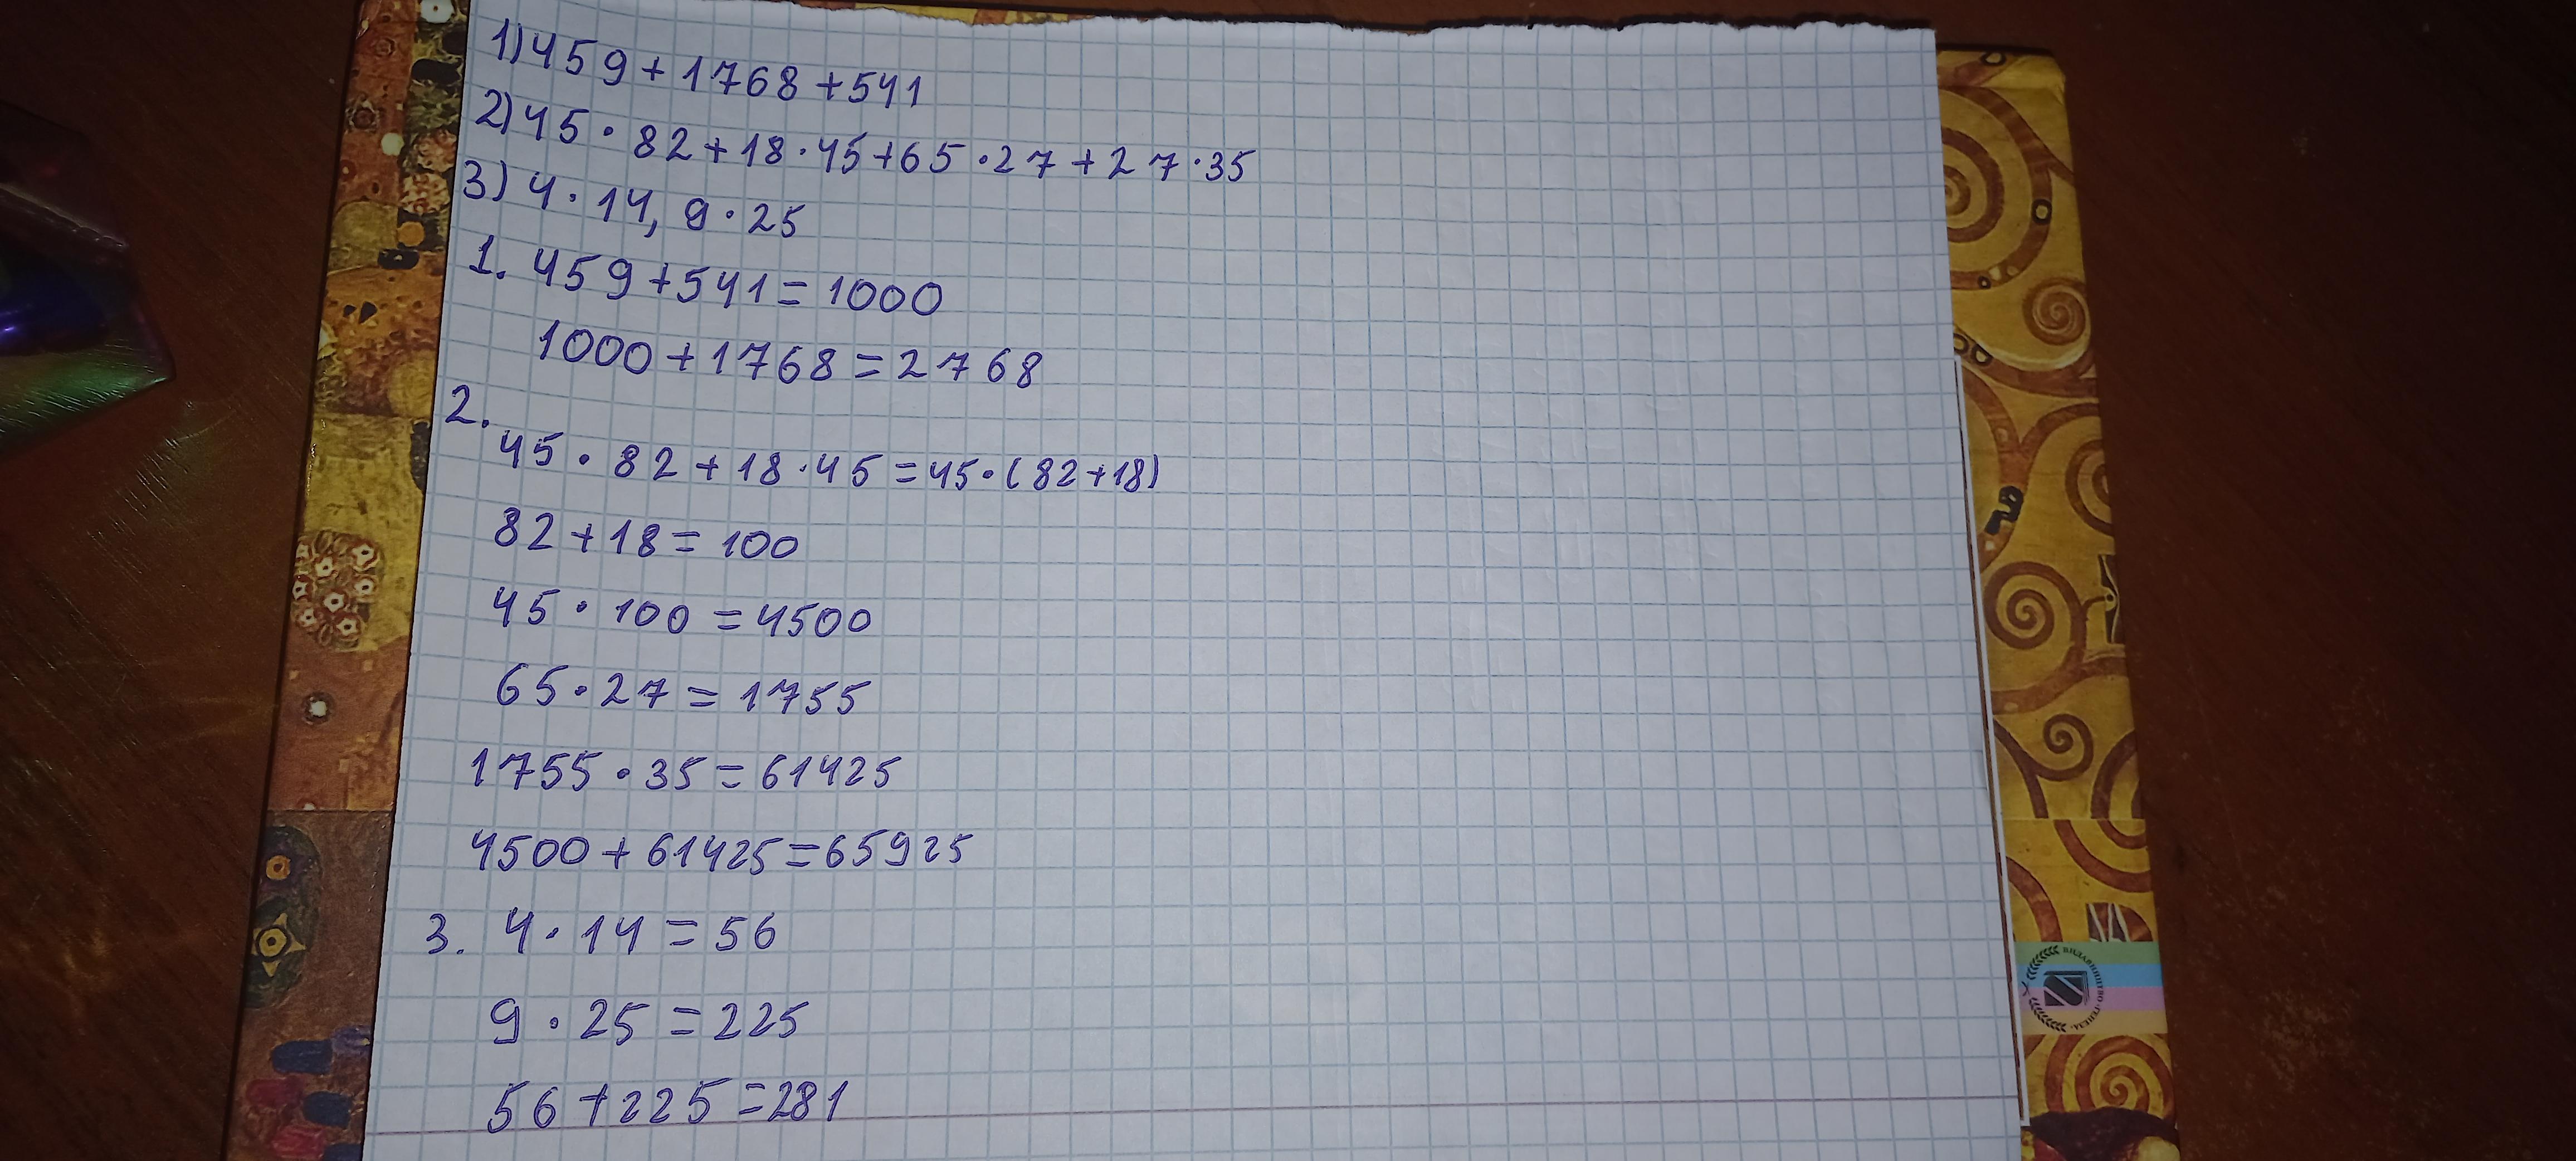 1) 459+1768+541
2) 45·82+18·45+65·27+27·35
3) 4·14,9·25
1. 459+541=1000
1000+1768=2768
2.
45·82+18·45=45·(82+18)
82+18=100
45·100=4500
65·27=1755
1755·35=61425
4500+61425=65925
3. 4·14=56
9·25=225
56+225=281
ВИДАВНИЦТВО «ГЕНЕЗА»